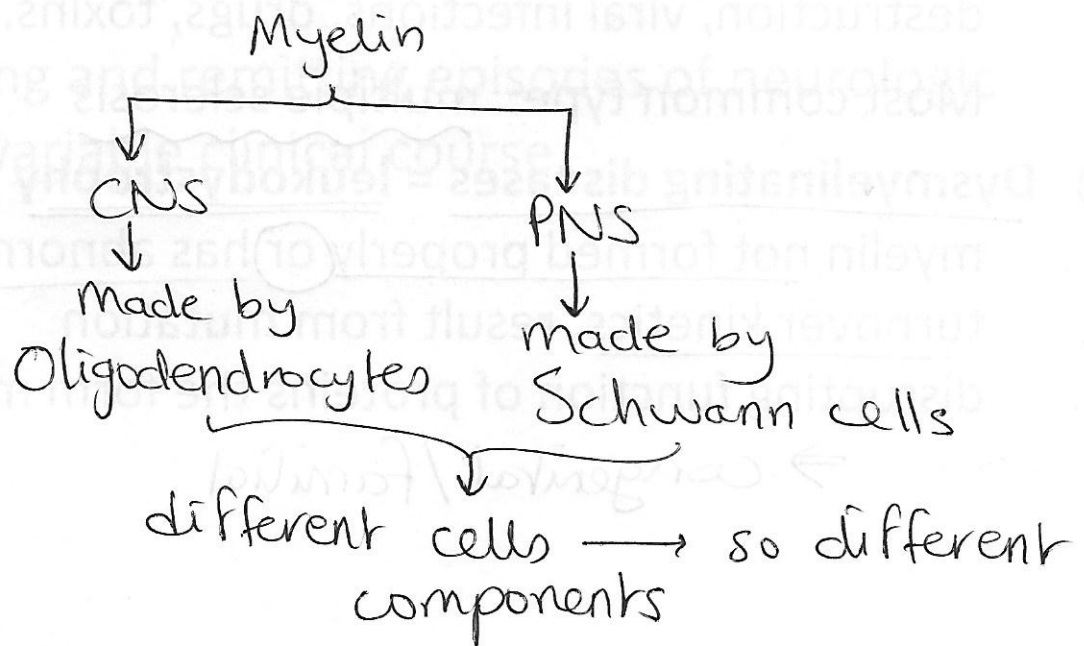 Myelin
CNS
PNS
Made by
Oligodendrocytes
made by
Schwann cells
different cells → so different
components